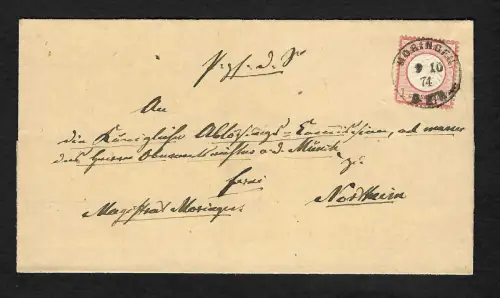 MORINGEN
9 10
74
An
die Königliche Ablösungs-Commission, ad manus
des Herrn
zu
frei
Magistrat Moringen.
Northeim